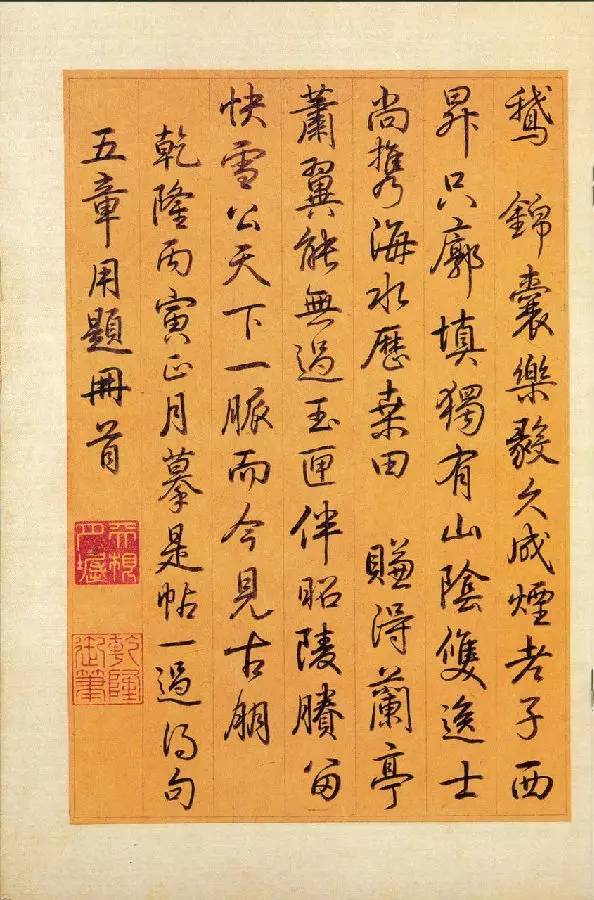 鵝 錦囊樂毅久成煙老子西
昇只廓填獨有山陰雙逸士
尚携海水歷桒田 賺得蘭亭
蕭翼能無過玉匣伴昭陵賸留
快雪公天下一脈而今見古朋
乾隆丙寅正月摹是帖一過得句
五章用題冊首
乾隆御筆